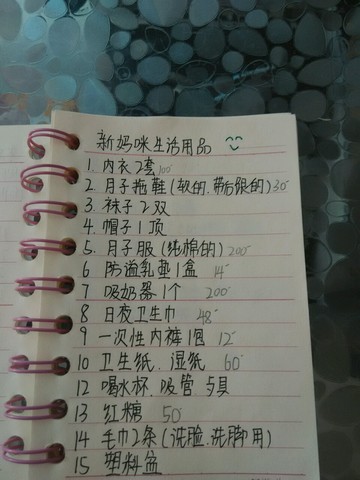 新妈咪生活用品
1. 内衣2套 100
2. 月子拖鞋(软的.带后跟的)30
3. 袜子2双
4. 帽子1顶
5. 月子服(纯棉的)200
6 防溢乳垫1盒 14
7 吸奶器1个 200
8 日夜卫生巾 48
9 一次性内裤1包 12
10 卫生纸.湿纸 60
12 喝水杯.吸管 与具
13 红糖 50
14 毛巾2条(洗脸.洗脚用)
15 塑料盆